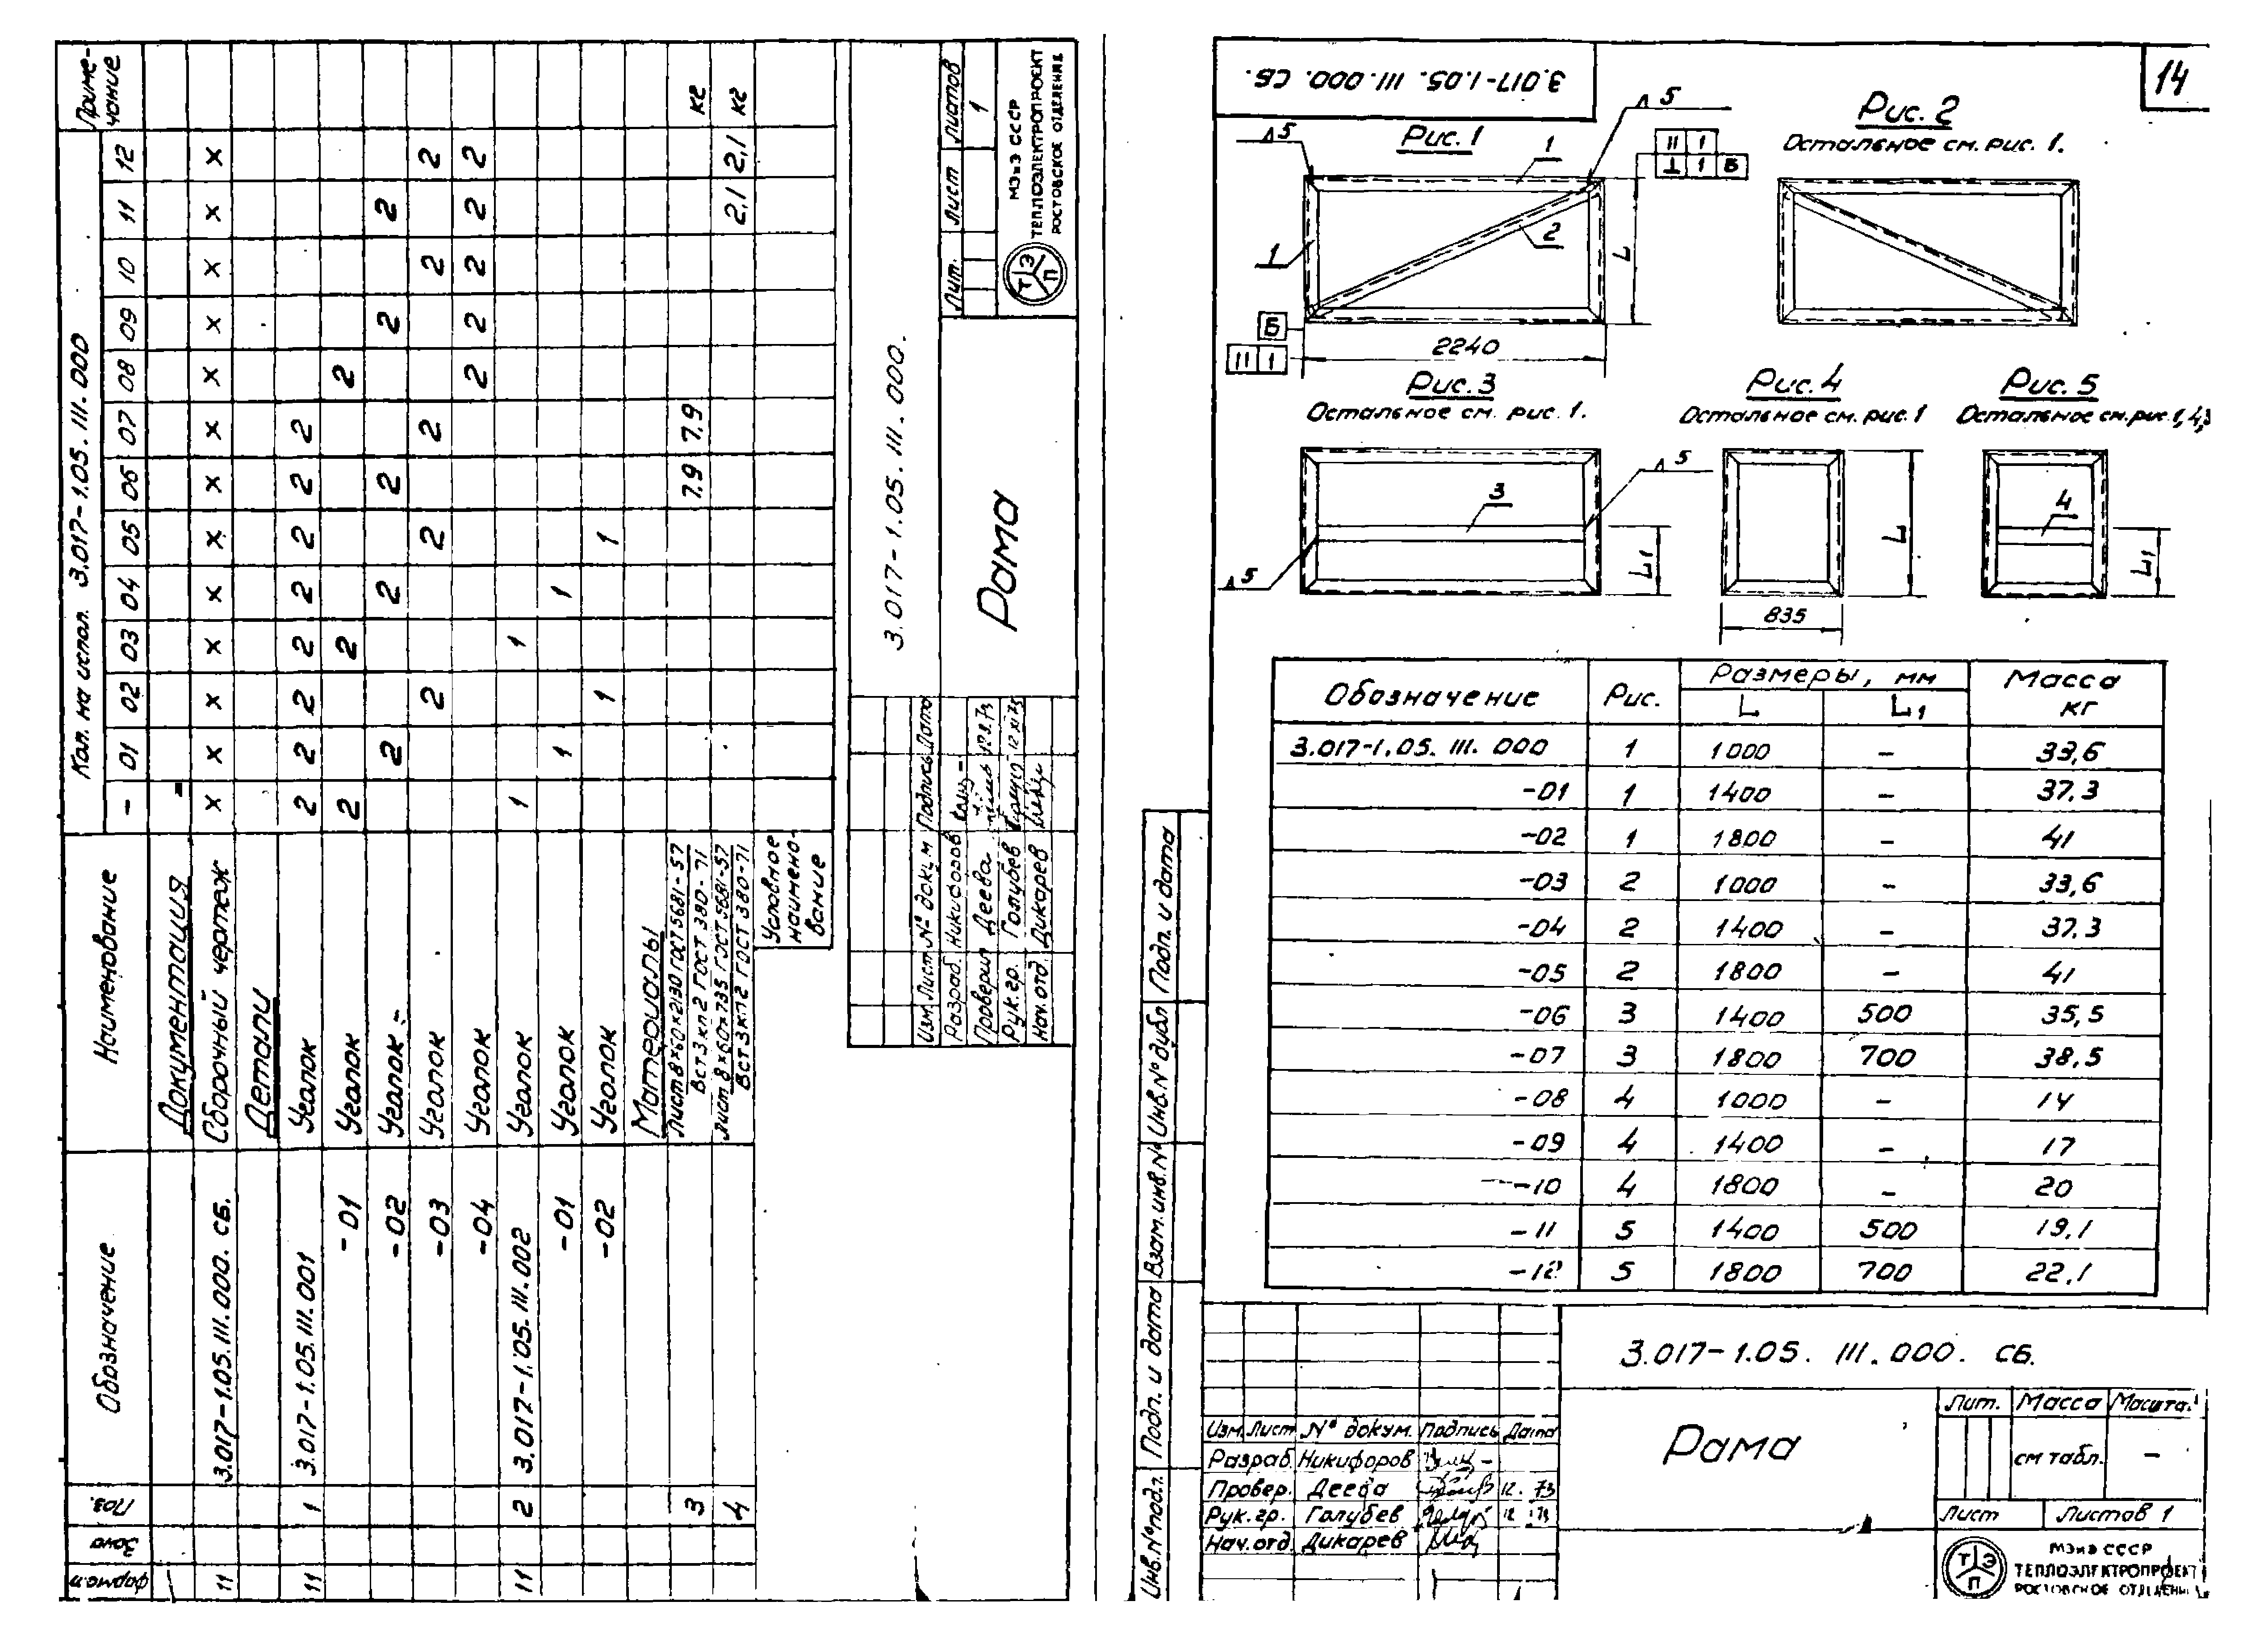 Формат Зона Поз. Обозначение Наименование Кол. на испол. 3.017-1.05.III.000 Приме-
чание
- 01 02 03 04 05 06 07 08 09 10 11 12
Документация -
11 3.017-1.05.III.000. СБ. Сборочный чертеж × × × × × × × × × × × × ×
Детали
11 1 3.017-1.05.III.001 Уголок 2 2 2 2 2 2 2 2
-01 Уголок 2 2 2
-02 Уголок 2 2 2 2 2
-03 Уголок 2 2 2 2 2
-04 Уголок 2 2 2 2 2
11 2 3.017-1.05.III.002 Уголок 1 1
-01 Уголок 1 1
-02 Уголок 1 1
Материалы
3 Лист 8×60×2130 ГОСТ 5681-57 7,9 7,9 кг
Вст3кп2 ГОСТ 380-71
4 Лист 8×60×735 ГОСТ 5681-57 2,1 2,1 кг
Вст3кп2 ГОСТ 380-71
Условное
наимено-
вание
3.017-1.05.III.000.
Изм. Лист № докум Подпись Дата
Разраб. Никифоров
Проверил Деева
Рук.гр. Голубев
Нач.отд. Дикарев
Рама
Лит. Лист Листов
1
ТЭП
МЭиЭ СССР
ТЕПЛОЭЛЕКТРОПРОЕКТ
РОСТОВСКОЕ ОТДЕЛЕНИЕ
3.017-1.05. III.000. СБ.
14
Рис.1
5
5
1
1
2
L
|| 1
⊥ 1 Б
Б
|| 1
2240
Рис. 2
Остальное см. рис. 1.
Рис. 3
Остальное см. рис. 1.
3
5
5
L1
Рис.4
Остальное см. рис. 1
L
835
Рис. 5
Остальное см. рис. 1, 4,
4
L1
Обозначение Рис. Размеры, мм Масса
L L1 кг
3.017-1.05. III. 000 1 1000 - 33,6
-01 1 1400 - 37.3
-02 1 1800 - 41
-03 2 1000 - 33,6
-04 2 1400 - 37.3
-05 2 1800 - 41
-06 3 1400 500 35,5
-07 3 1800 700 38,5
-08 4 1000 - 14
-09 4 1400 - 17
-10 4 1800 - 20
-11 5 1400 500 19,1
-12 5 1800 700 22,1
Инв.№ подл. Подп. и дата Взам.инв.№ Инв.№ дубл Подп. и дата
3.017-1.05. III.000. СБ.
Изм. Лист № докум. Подпись Дата
Разраб. Никифоров
Провер. Деева 12. 73
Рук.гр. Голубев 12 .73
Нач.отд. Дикарев
Рама
Лит. Масса Масшта.
см табл. -
Лист Листов 1
ТЭП
МЭиЭ СССР
ТЕПЛОЭЛЕКТРОПРОЕКТ
РОСТОВСКОЕ ОТДЕЛЕНИ